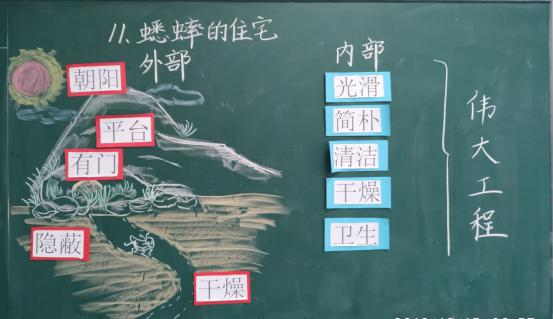 11.蟋蟀的住宅
外部
朝阳
平台
有门
隐蔽
干燥
内部
光滑
简朴
清洁
干燥
卫生
伟大工程